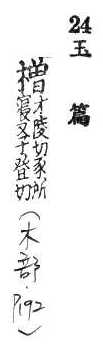 24 玉篇
橧才陵切豕所
寢又子登切
(木部·P192)